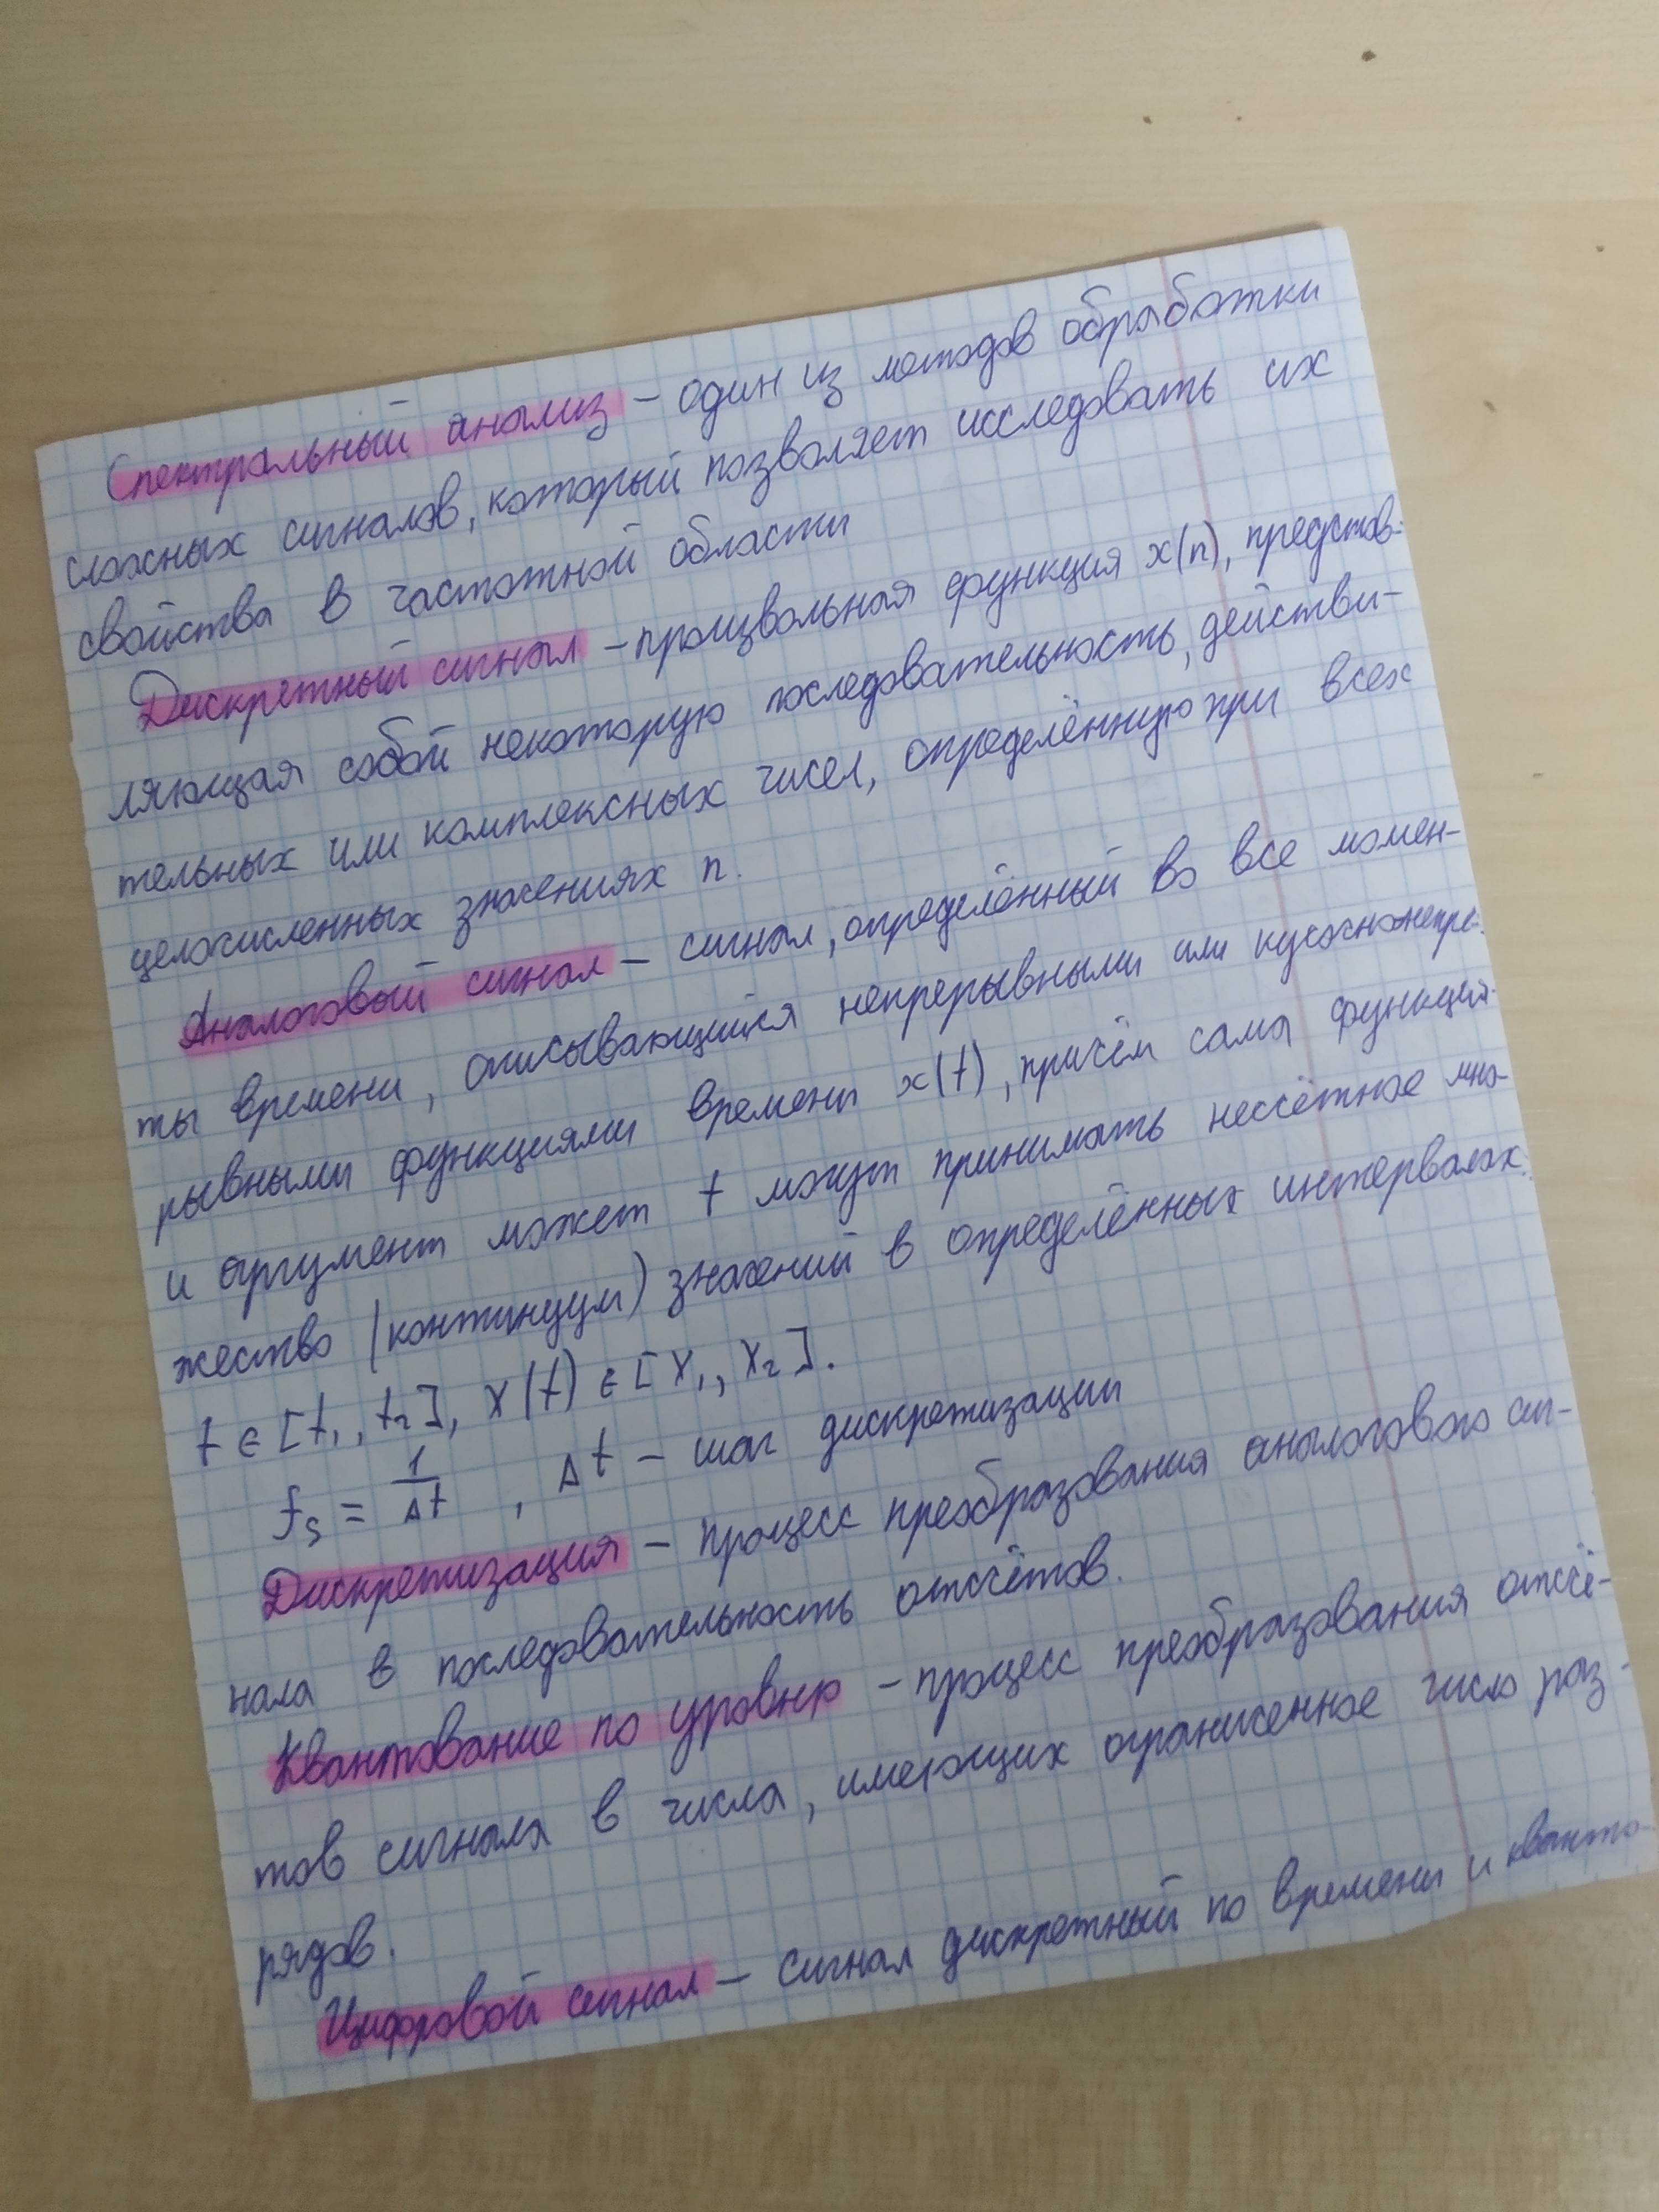 Спектральный анализ – один из методов обработки
сложных сигналов, который позволяет исследовать их
свойства в частотной области
Дискретный сигнал – произвольная функция x(n), представ-
ляющая собой некоторую последовательность, действи-
тельных или комплексных чисел, определённую при всех
целочисленных значениях n.
Аналоговый сигнал – сигнал, определённый во все момен-
ты времени, описывающийся непрерывными или кусочнонепре-
рывными функциями времени x(t), причём сама функция
и аргумент может t могут принимать несчётное мно-
жество (континуум) значений в определённых интервалах.
t ∈ [t₁, t₂], X(t) ∈ [X₁, X₂].
fs = 1/Δt , Δt – шаг дискретизации
Дискретизация – процесс преобразования аналогового сиг-
нала в последовательность отсчётов.
Квантование по уровню – процесс преобразования отсчё-
тов сигнала в числа, имеющих ограниченное число раз-
рядов.
Цифровой сигнал – сигнал дискретный по времени и кванто-